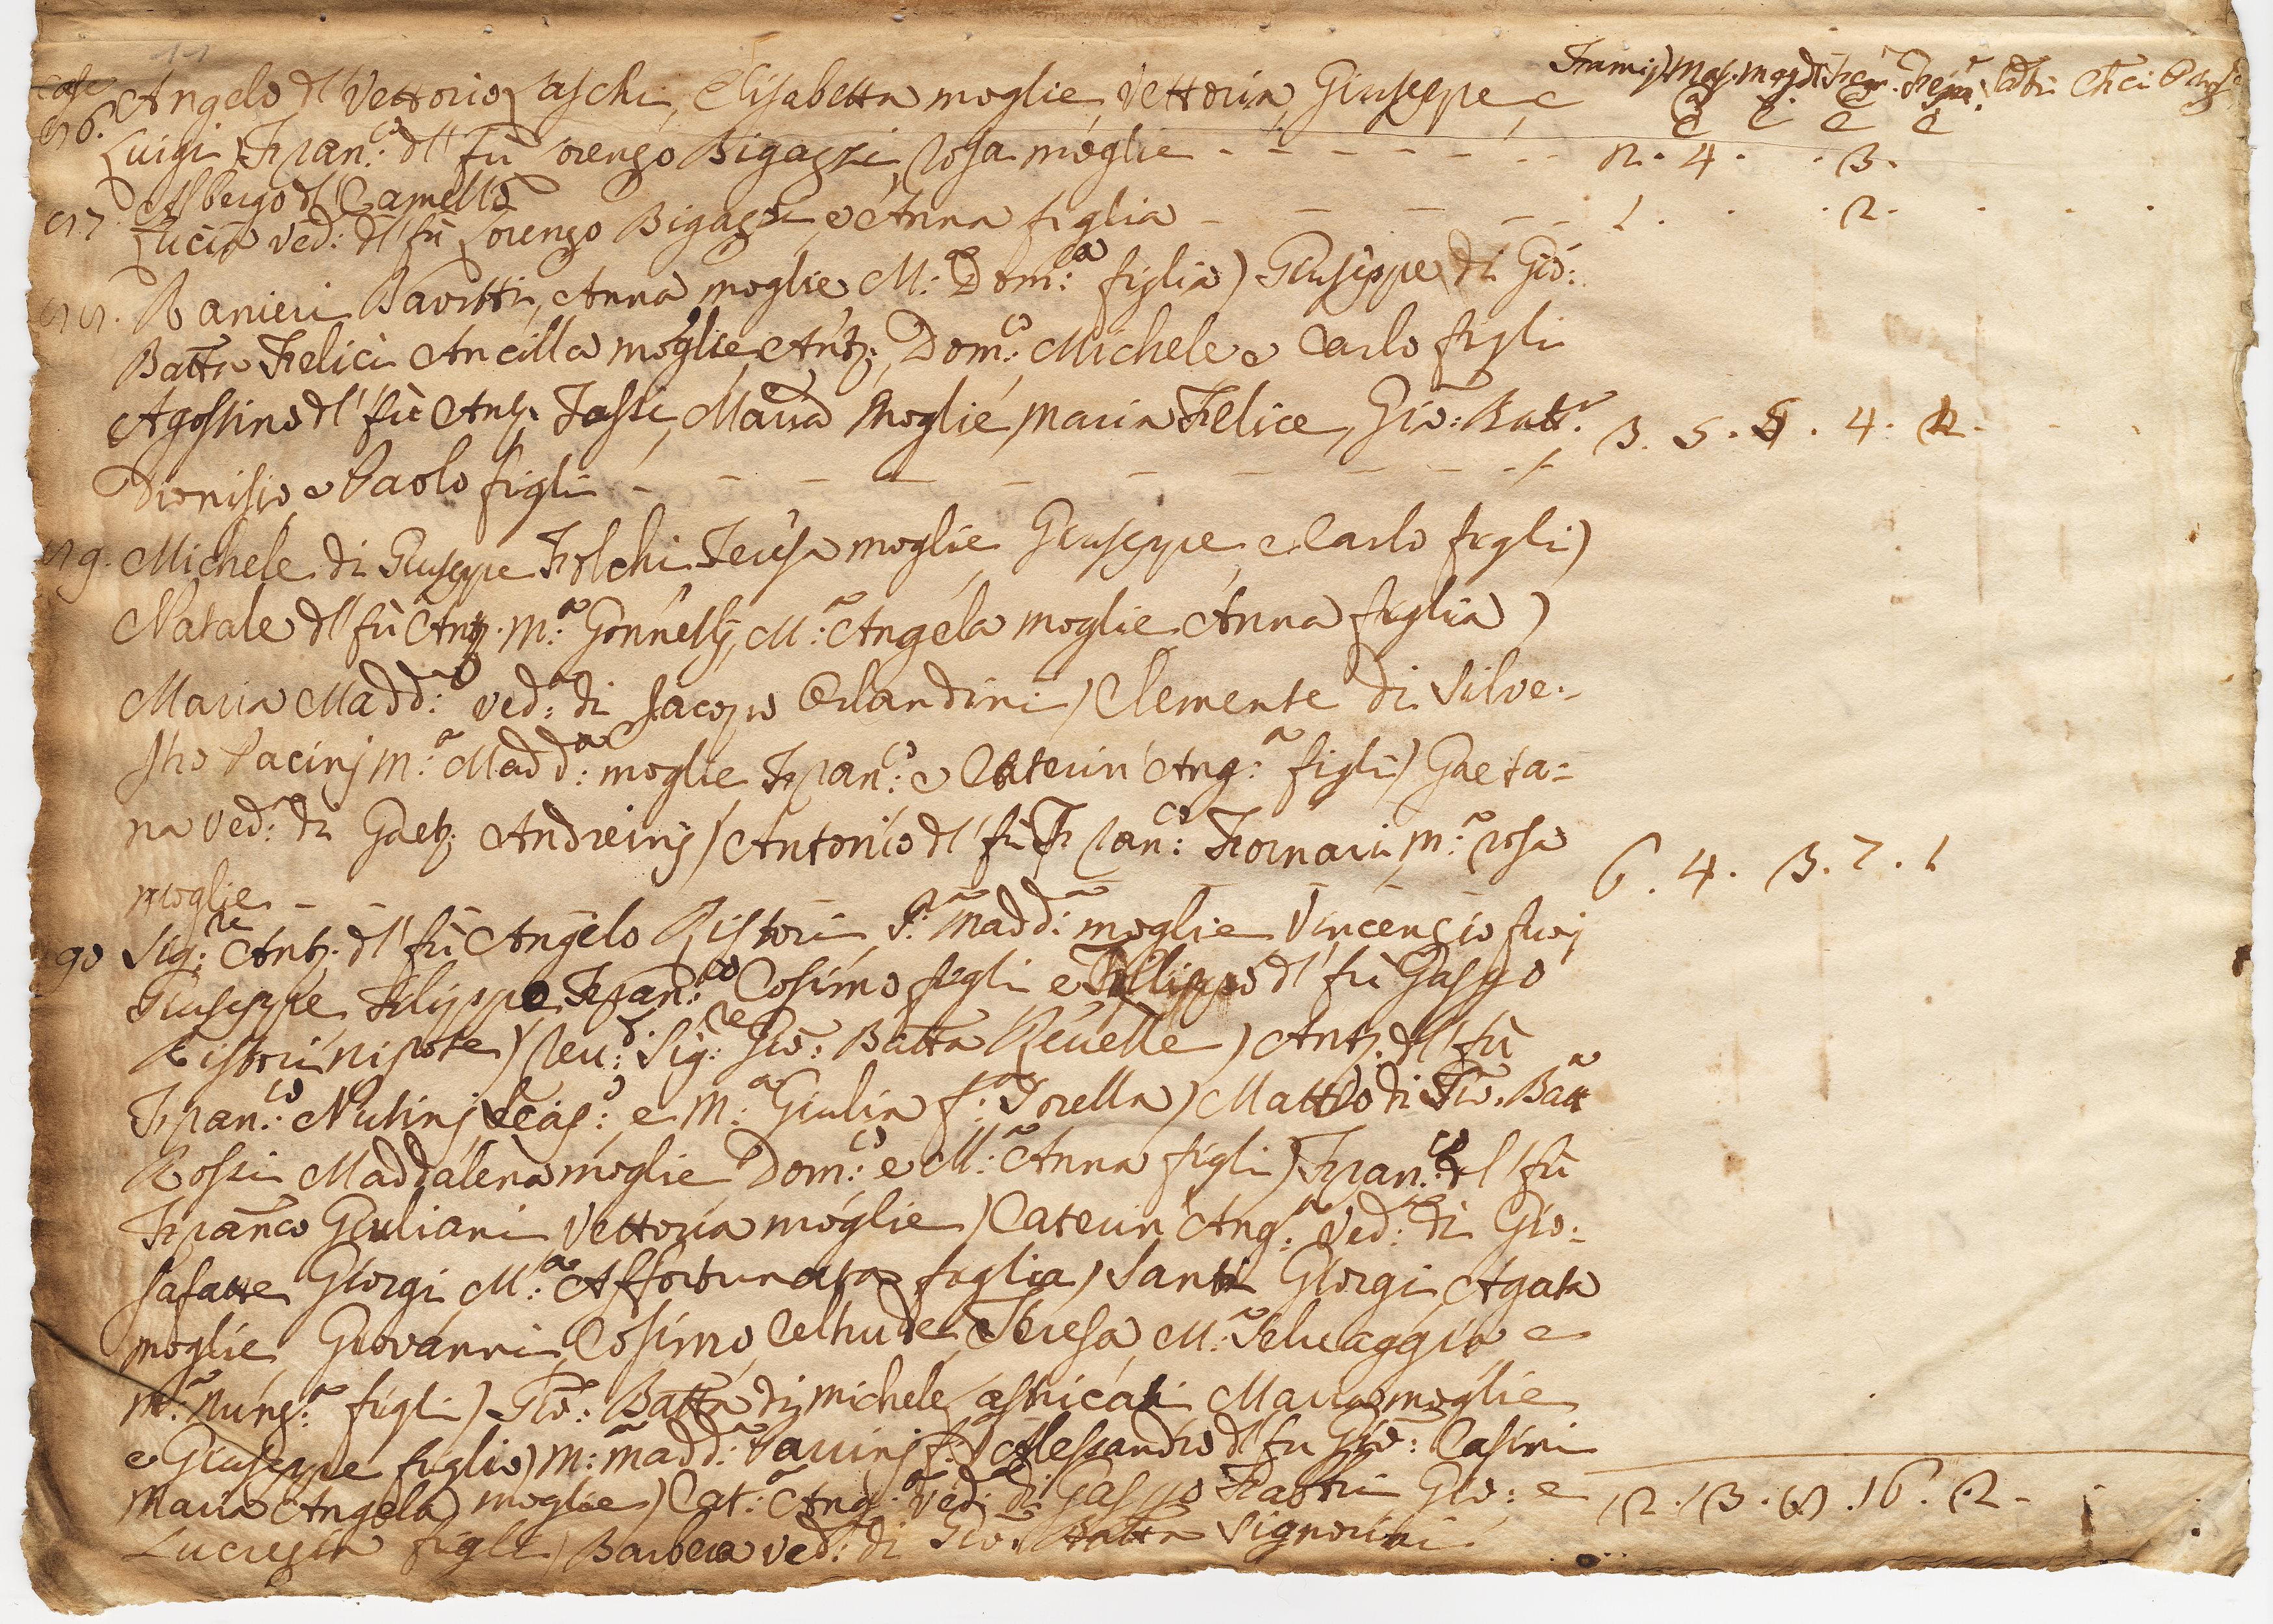 Case
86. Angelo dl' Vettorio Laschi, Elisabetta moglie, Vettoria, Giuseppe, e
Luigi) Fran:co dl' fù Lorenzo Bigazzi, Rosa moglie - - - - - - 2. 4. . 3.
Albergo dl' Camello
87. Lucia ved: dl' fù Lorenzo Bigazzi, e Anna figlia - - - - - 1. . . 2. . . .
88. Ranieri Anna moglie M: Dom:a figlia) Giuseppe di Gio:
Batta Felici Ancilla moglie, Ant:, Dom:co Michele e Carlo figli
Agostino dl' fù Ant: Tassi, Maria Moglie, Maria Felice, Gio: Batt:a 3. 5. 5. 4. 2.
Dionisio e Paolo figli - - - - - - - - -
89. Michele di Giuseppe Folchi Teresa moglie Giuseppe, e Carlo figli)
Natale dl' fù Ant: M:a Gonnellj, M:a Angela moglie Anna figlia)
Maria Madd:a ved:a di Jacopo Orlandini) Clemente di Silve-
stro Pacinj M:a Madd:a moglie Fran:co e Caterin' Ang:a figli) Gaeta=
na ved:a di Gaet: Andreinj) Antonio dl' fù Fran:co Fornari, M:a Rosa 6. 4. 3. 7. 1
moglie - - - - - -
90 Sig:re Ant: dl' fù Angelo Ristori S:a Madd:a moglie Vincenzio
Giuseppe Filippo Fran:co Cosimo figli e Filippo dl' fù Gaspo
Ristori nipote) Reu:d Sig:re Gio: Batta Reuelle) Ant: dl' fù
Fran:co Nutinj e M:a Giulia Sorella) Matteo di Gio: Batta
Rossi Maddalena moglie Dom:co e M:a Anna figli) Fran:co dl' fù
Franco Giuliani Vettoria moglie) Caterin' Ang:a Ved:a di Gio=
safatte Giorgi M:a Affortunata figlia) Santi Giorgi Agata
moglie Giovanni, Cosimo, Teresa, M:a Seluaggia e
M:a Nunz:a figli) Gio: Batta di Michele Lastricati Maria moglie
e Giuseppe figlio) M:a Madd:a Alessandro dl' fù Gio: Casini
Maria Angela moglie) Cat:a Ang:a Ved:a di Gaspo Gio: e 12. 13. 8. 16. 2. .
Lucrezia figli) Barbera ved:a di Gio: Batta Signorini